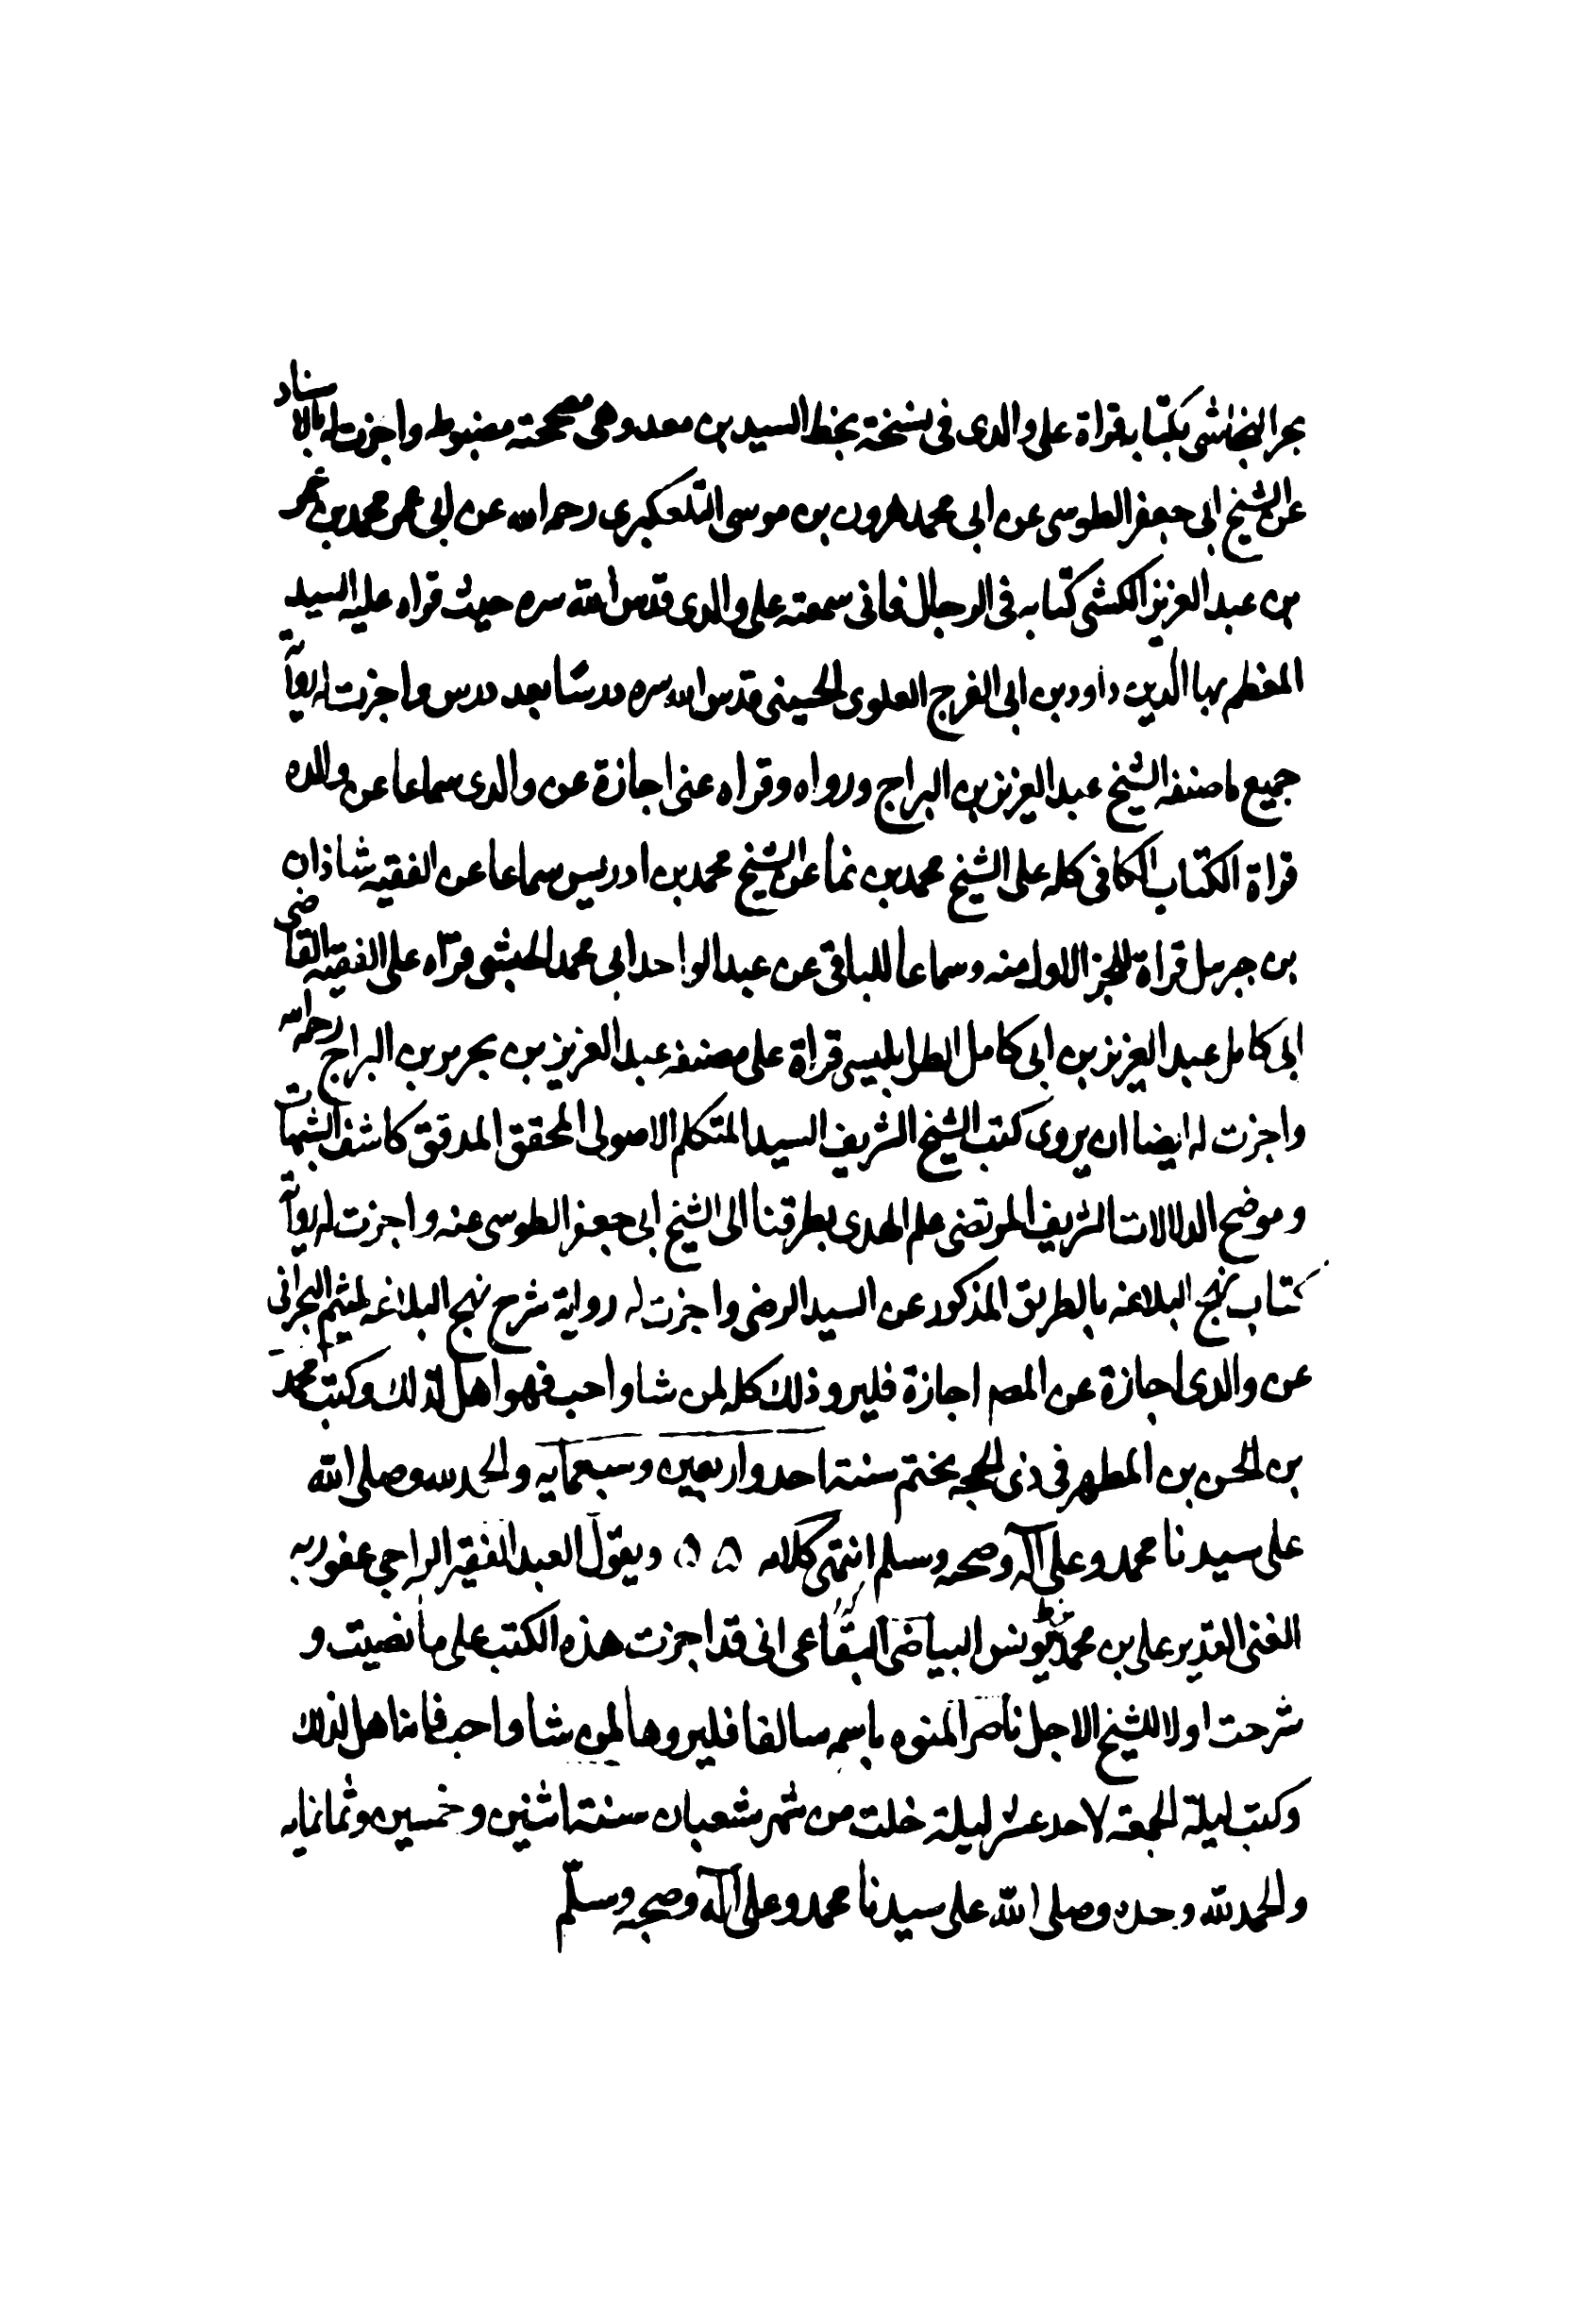 بحر النجاشى بكتابه قراة على والدى فى نسخة بخط السيد بن معد وهى مصححة مضبوطه واجزت له بالاسناد
عن الشيخ ابى جعفر الطوسى عن ابى محمد هرون بن موسى التلعكبرى رحمه الله عن ابى عمر محمد بن عمر
بن عبد العزيز الكشى كتابه فى الرجال فانى سمعته على والدى قدس الله سره حيث قراه عليه السيد
المعظم بها الدين داود بن ابى الفرج العلوى الحسينى قدس الله سره درسًا بعد درس واجزت له رواية
جميع ما صنفه الشيخ عبد العزيز بن البراج ورواه وقراه عنى اجازة عن والدى سماعا عن والده
قراة الكتاب الكافى كله على الشيخ محمد بن نما عن الشيخ محمد بن ادريس سماعا عن الفقيه شاذان
بن جبرىل قراة للجز الاول منه وسماعا للباقى عن عبد الواحد ابى محمد الحبشى قراه على الفقيه القاضى
ابى كامل عبد العزيز بن ابى كامل الطرابلسى قراة على مصنفه عبد العزيز بن بحرير بن البراج رحمه الله
واجزت له ايضا ان يروى كتب الشيخ الشريف السيد المتكلم الاصولى المحقق المدقق كاشف الشبهات
وموضح الدلالات الشريف المرتضى علم الهدى بطرقنا الى الشيخ ابى جعفر الطوسى عنه واجزت له رواية
كتاب نهج البلاغه بالطريق المذكور عن السيد الرضى واجزت له رواية شرح نهج البلاغه لميثم البحرانى
عن والدى اجازة عن المصـ اجازة فليرو ذلك كله لمن شا واحب فهو اهل لذلك وكتب محمد
بن الحسن بن المطهر فى ذى الحجه بختم سنة احد واربعين وسبعمايه والحمد لله وصلى الله
على سيدنا محمد وعلى اله وصحبه وسلم انتهى كلامه ۵ ۵ ويقول العبد الفقير الراجى عفو ربه
الغنى القدير على بن محمد بن يونس البياضى البقاعى انى قد اجزت هذه الكتب على ما نصيت و
شرحت اولا للشيخ الاجل ناصر المنوه باسمه سالفا فليروها لمن شا واحب فانه اهل لذلك
وكتب ليلة الجمعه لاحد عشر ليلة خلت من شهر شعبان سنة اثنين وخمسين وثمانمايه
والحمد لله وحده وصلى الله على سيدنا محمد وعلى اله وصحبه وسلّم